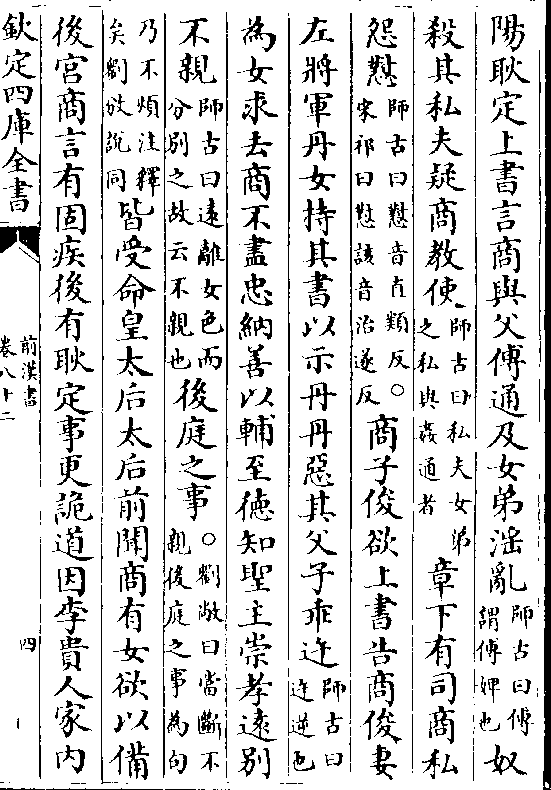 陽耿定上書言商與父傅通及女弟淫亂師古曰傅謂傅婢也奴
殺其私夫疑商教使師古曰私夫女弟之私與姦通者章下有司商私
怨懟師古曰懟音直類反○宋祁曰懟該音治遂反商子俊欲上書告商俊妻
左將軍丹女持其書以示丹丹惡其父子乖迕師古曰迕逆也
為女求去商不盡忠納善以輔至德知聖主崇孝逺別
不親師古曰逺離女色而分別之故云不親也後庭之事○劉敞曰當斷不親後庭之事為句
乃不煩注釋矣劉攽說同皆受命皇太后太后前聞商有女欲以備
後宮商言有固疾後有耿定事更詭道因李貴人家内
欽定四庫全書
前漢書
卷八十二
四